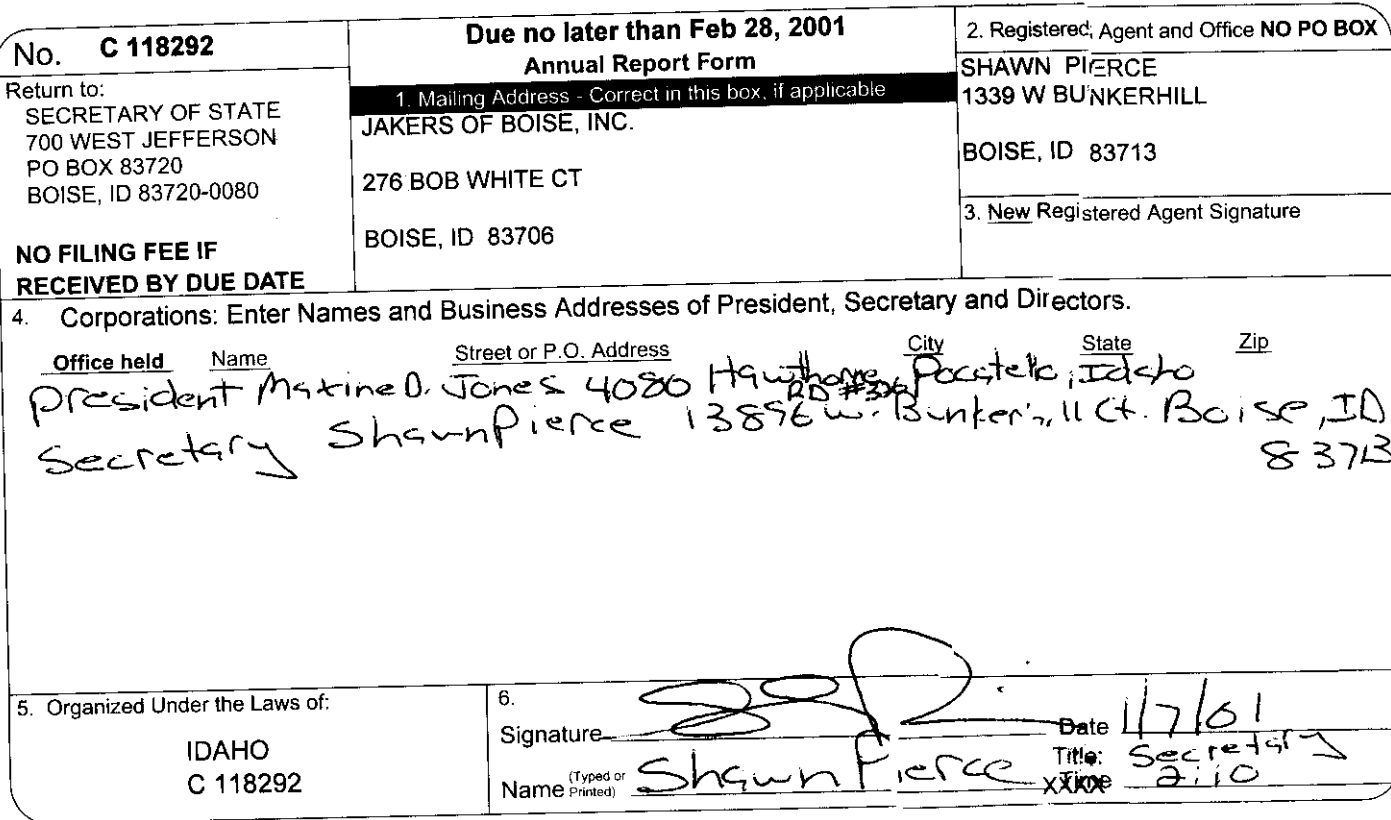 No. C 118292
Return to:
SECRETARY OF STATE
700 WEST JEFFERSON
PO BOX 83720
BOISE, ID 83720-0080
NO FILING FEE IF
RECEIVED BY DUE DATE
Due no later than Feb 28, 2001
Annual Report Form
1. Mailing Address - Correct in this box, if applicable
JAKERS OF BOISE, INC.
276 BOB WHITE CT
BOISE, ID 83706
2. Registered Agent and Office NO PO BOX
SHAWN PIERCE
1339 W BUNKERHILL
BOISE, ID 83713
3. New Registered Agent Signature
4. Corporations: Enter Names and Business Addresses of President, Secretary and Directors.
Office held Name Street or P.O. Address City State Zip
President Maxine D. Jones 4080 Hawthorne Pocatello, Idaho
RD
Secretary Shawn Pierce 13896 W. Ct. Boise, ID
83713
5. Organized Under the Laws of:
IDAHO
C 118292
6.
Signature Date 1/7/01
Name (Typed or Printed) Shawn Pierce Title: Secretary
Time 2:10